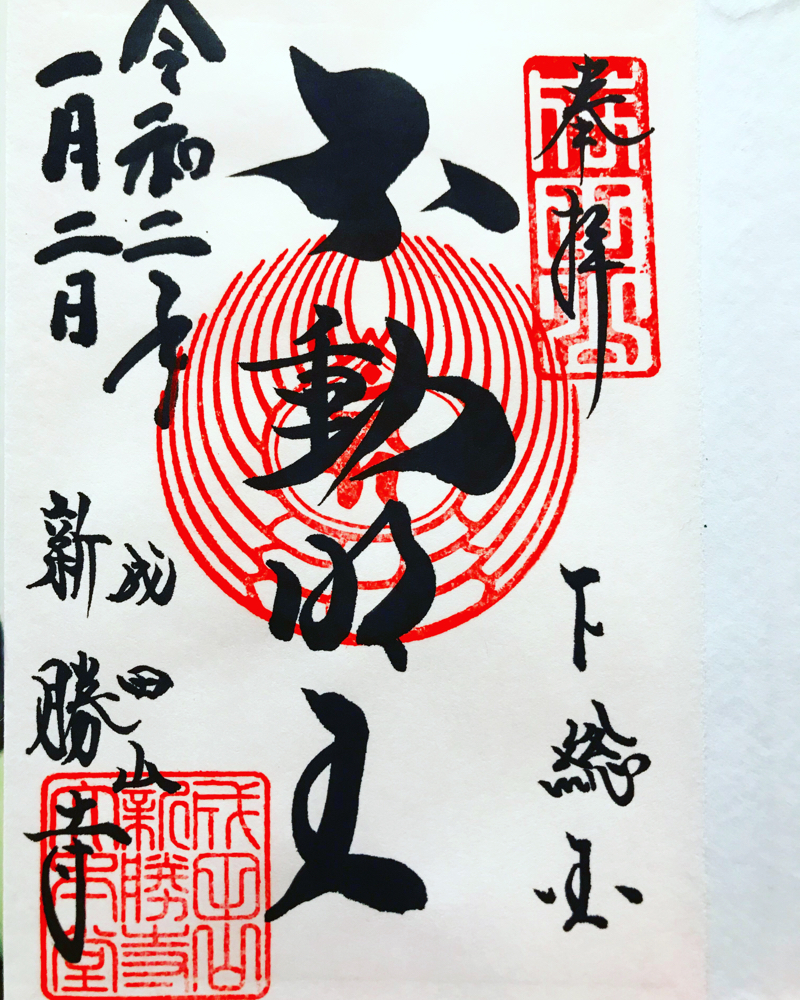 奉拝
成田山
下総国
不動明王
令和二年
一月二日
成田山
新勝寺
成田山
新勝寺
本堂